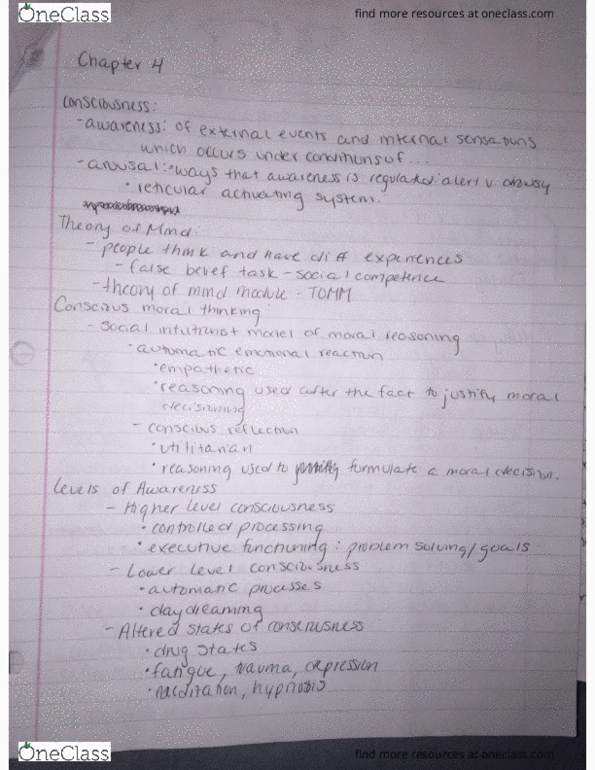 OneClass
find more resources at oneclass.com
Chapter 4
Consciousness:
- awareness: of external events and internal sensations
which occurs under conditions of ...
- arousal: ways that awareness is regulated: alert v. drowsy
• reticular activating system.
Theory of Mind:
- people think and have diff experiences
- false belief task - social competence
- theory of mind module - TOMM
Conscious moral thinking:
- social intuitionist model of moral reasoning
• automatic emotional reaction
• empathetic
• reasoning used after the fact to justify moral
decisioning
- conscious reflection
• utilitarian
• reasoning used to formulate a moral decision.
Levels of Awareness
- Higher level consciousness
• controlled processing
• executive functioning: problem solving/goals
- Lower level consciousness
• automatic processes
• daydreaming
- Altered states of consciousness
• drug states
• fatigue, trauma, depression
• meditation, hypnosis
OneClass
find more resources at oneclass.com